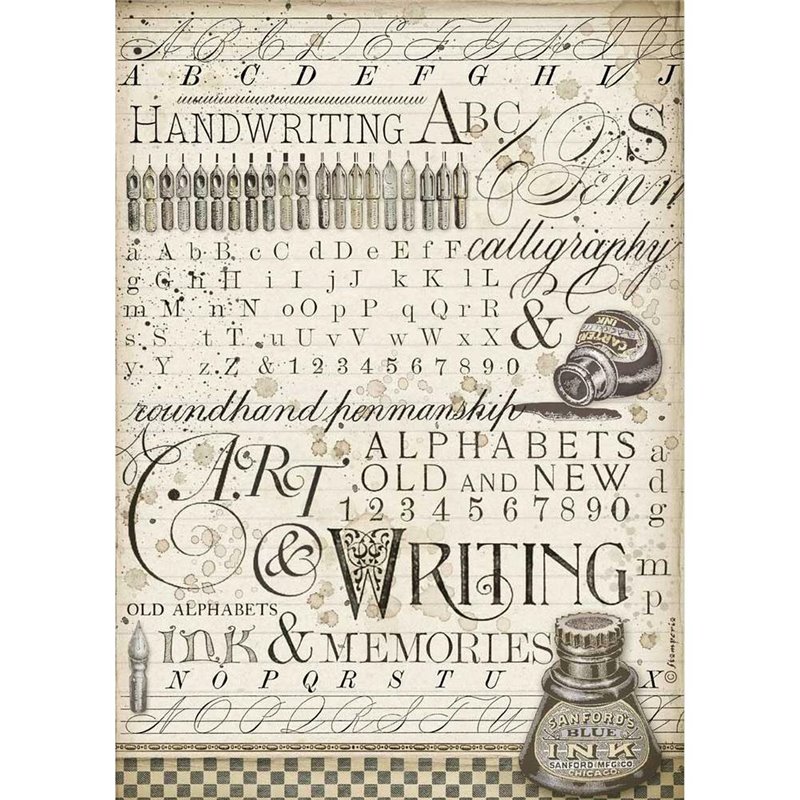 A B C D E F G H I J
A B C D E F G H I J
HANDWRITING ABC
S
Penn
calligraphy
a A b B c C d D e E f F
g G h H i I j J k K l L
m M n N o O p P q Q r R
s S t T u U v V w W x X &
y Y z Z & 1 2 3 4 5 6 7 8 9 0
CARTER'S
INK
roundhand penmanship
ART
ALPHABETS
OLD AND NEW
1 2 3 4 5 6 7 8 9 0
a
d
g
& WRITING
m
p
OLD ALPHABETS
INK & MEMORIES
N O P Q R S T U X
© stamperia
SANFORD'S
BLUE
INK
SANFORD MFG. CO.
CHICAGO